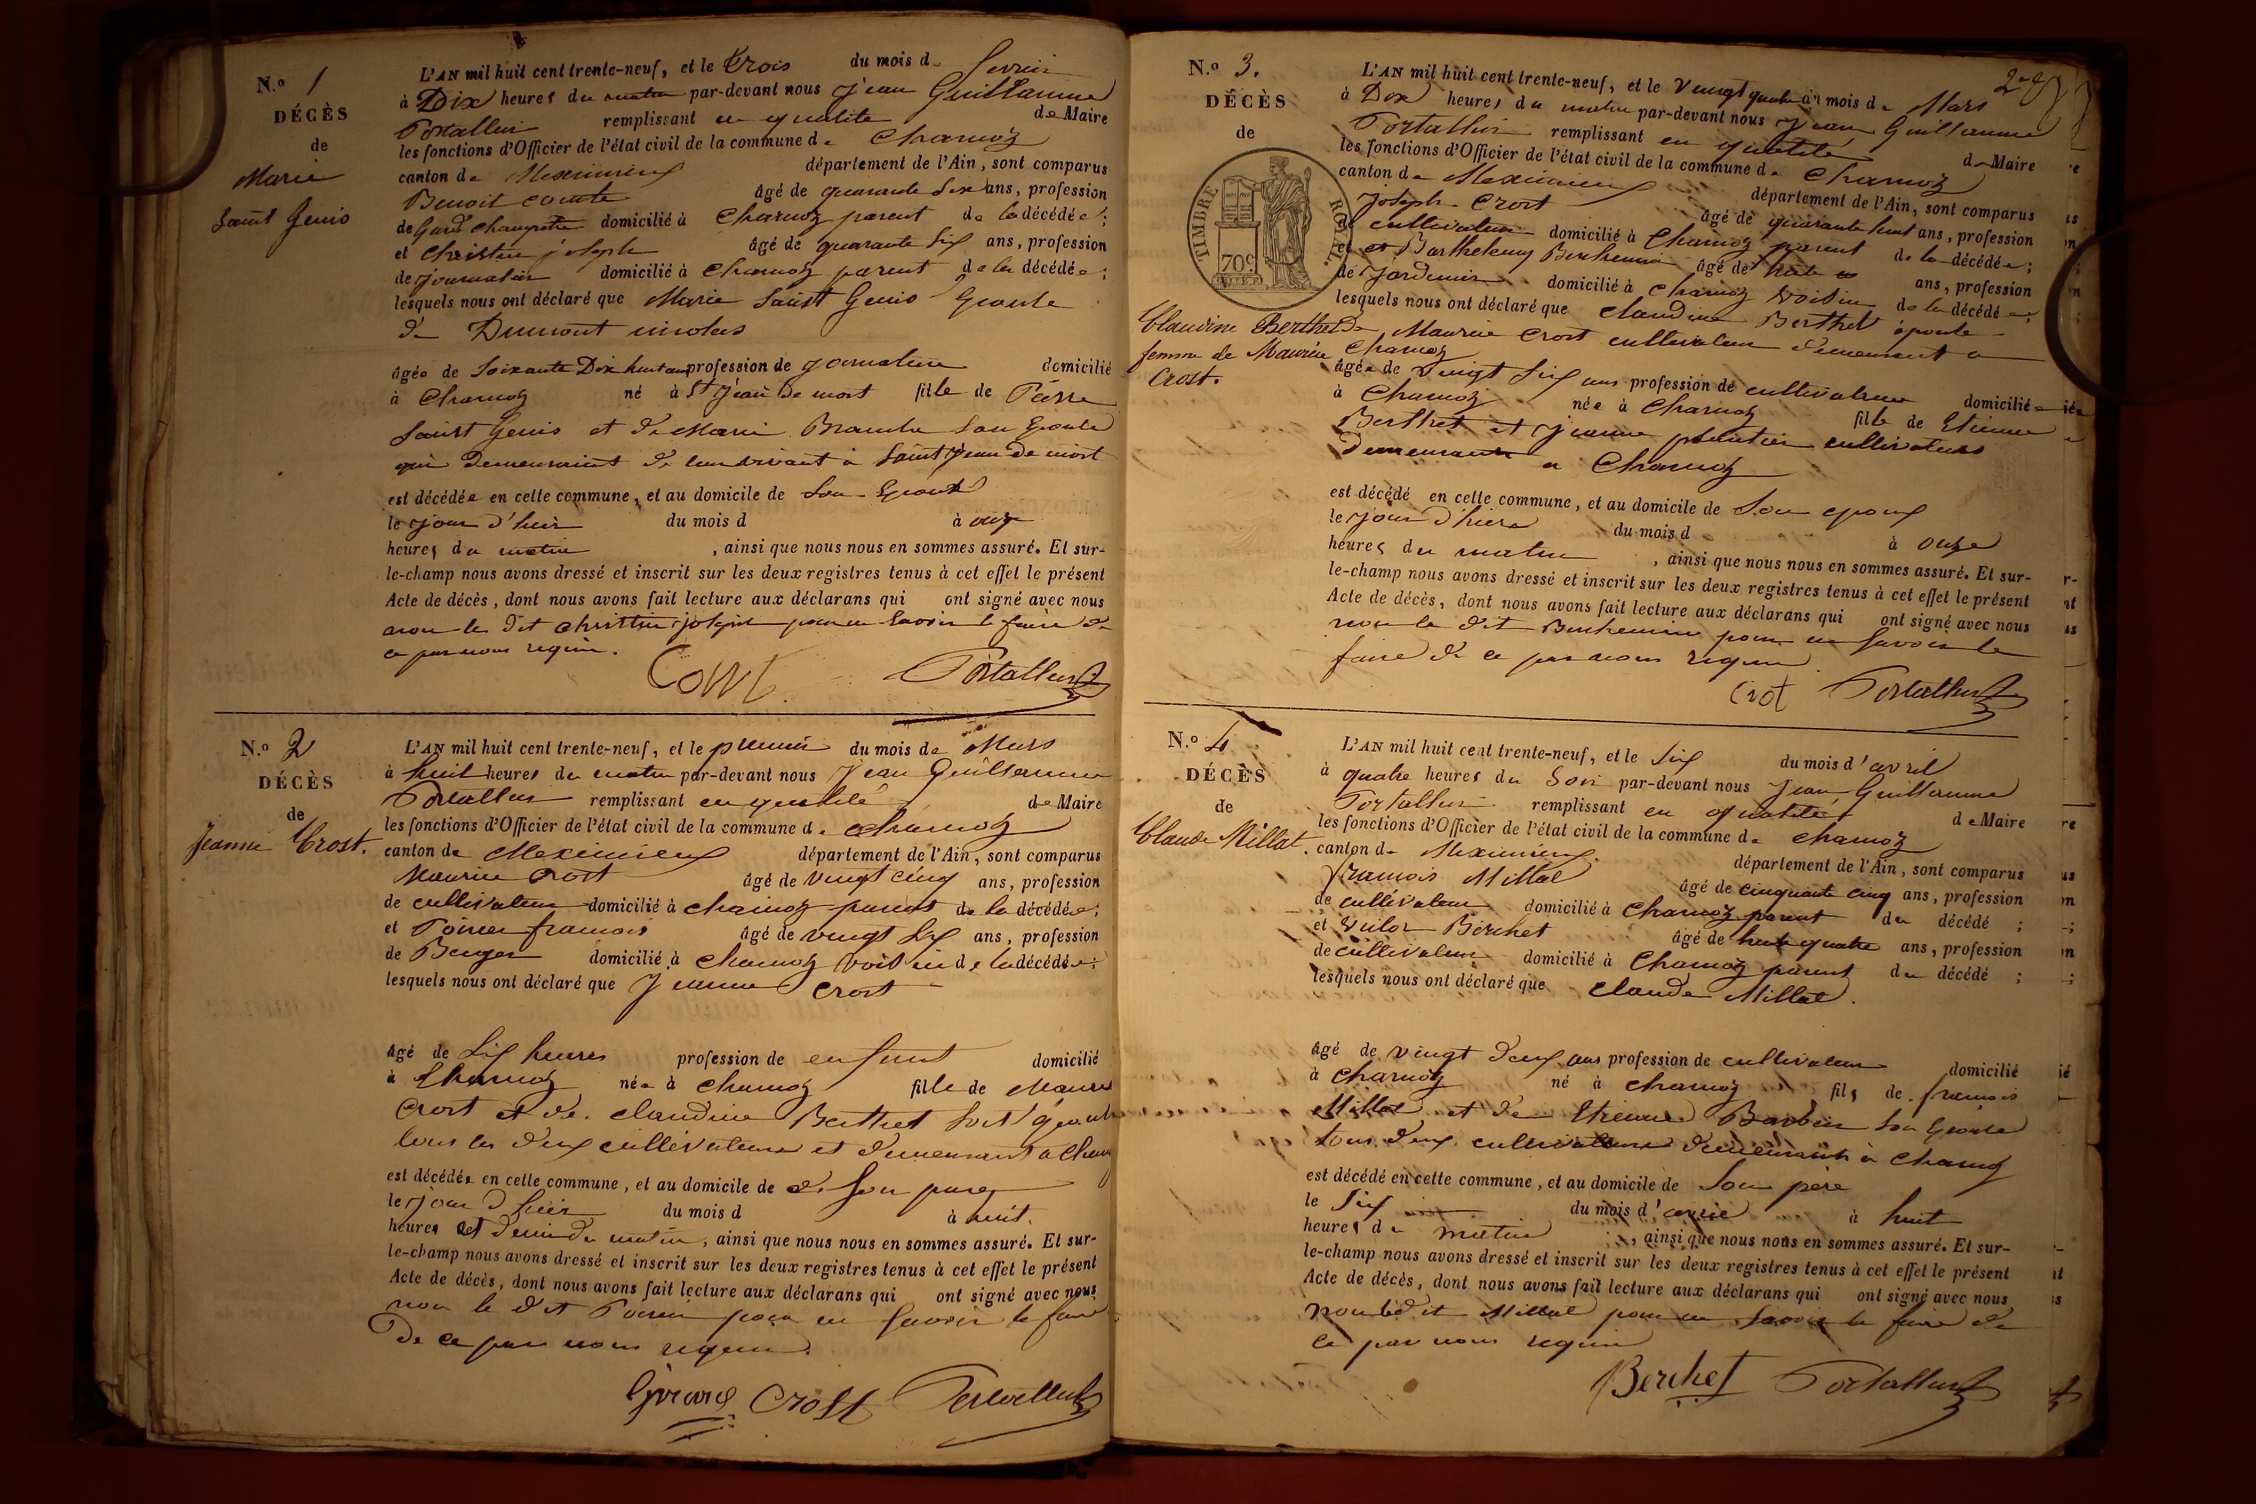 N.º 1
DÉCÈS
de
Marie
Saint Genis
L'AN mil huit cent trente-neuf, et le trois du mois de fevrier
à Dix heures du matin par-devant nous Jean Guillaume
Portallier remplissant en qualité de Maire
les fonctions d'Officier de l'état civil de la commune de Charnoz
canton de Meximieux département de l'Ain, sont comparus
Benoit Comte âgé de quarante six ans, profession
de Gard Champetre domicilié à Charnoz parent de la décédée;
et Christin joseph âgé de quarante six ans, profession
de journalier domicilié à Charnoz parent de la décédée;
lesquels nous ont déclaré que Marie Saint Genis Epouse
de Dumont nicolas
âgée de Soixante Dix huit ans profession de journaliere domicilié
à Charnoz né à St Jean de niost fille de Pierre
Saint Genis et de Marie Son Epouse
qui demeuraient de leur vivant à Saint Jean de niost
est décédée en cette commune, et au domicile de Son Epoux
le jour d'hier du mois d à onze
heures du matin, ainsi que nous nous en sommes assuré. Et sur-
le-champ nous avons dressé et inscrit sur les deux registres tenus à cet effet le présent
Acte de décès, dont nous avons fait lecture aux déclarans qui ont signé avec nous
non le dit Christin joseph pour ne Savoir le faire de
ce par nous requis.
Comte Portallier
N.º 2
DÉCÈS
de
Jeanne Crost.
L'AN mil huit cent trente-neuf, et le premier du mois de Mars
à huit heures du matin par-devant nous Jean Guillaume
Portallier remplissant en qualité de Maire
les fonctions d'Officier de l'état civil de la commune de Charnoz
canton de Meximieux département de l'Ain, sont comparus
Maurice Crost âgé de vingt cinq ans, profession
de cultivateur domicilié à Charnoz parent de la décédée;
et Poirier francois âgé de vingt six ans, profession
de Berger domicilié à Charnoz voisin de la décédée;
lesquels nous ont déclaré que Jeanne Crost
âgé de Six heures profession de enfant domicilié
à Charnoz née à Charnoz fille de Maurice
Crost et de Claudine Berthet Son Epouse
tous les deux cultivateurs et demeurant a Charnoz
est décédée en cette commune, et au domicile de de Son pere
le jour d'hier du mois d à huit
heures et demi du matin, ainsi que nous nous en sommes assuré. Et sur-
le-champ nous avons dressé et inscrit sur les deux registres tenus à cet effet le présent
Acte de décès, dont nous avons fait lecture aux déclarans qui ont signé avec nous
non le dit Poirier pour ne Savoir le faire
De ce par nous requis.
Crost Portallier
N.º 3.
DÉCÈS
de
TIMBRE ROYAL.
70c
Claudine Berthet
femme de Maurice
Crost.
L'AN mil huit cent trente-neuf, et le vingt quatre du mois de Mars
à Dix heures du matin par-devant nous Jean Guillaume
Portallier remplissant en qualité de Maire
les fonctions d'Officier de l'état civil de la commune de Charnoz
canton de Meximieux département de l'Ain, sont comparus
Joseph Crost âgé de quarante huit ans, profession
de cultivateur domicilié à Charnoz parent de la décédée;
et Barthelemy Berchemin âgé de trente ans, profession
de Jardinier domicilié à Charnoz voisin de la décédée;
lesquels nous ont déclaré que Claudine Berthet épouse
de Maurice Crost cultivateur demeurant a
Charnoz
âgée de vingt six ans profession de cultivateur domiciliée
à Charnoz née à Charnoz fille de Etienne
Berthet et Jeanne cultivateurs
Demeurant a Charnoz
est décédé en cette commune, et au domicile de Son epoux
le jour d'hiere du mois d à onze
heures du matin, ainsi que nous nous en sommes assuré. Et sur-
le-champ nous avons dressé et inscrit sur les deux registres tenus à cet effet le présent
Acte de décès, dont nous avons fait lecture aux déclarans qui ont signé avec nous
non le dit Berchemin pour ne Savoir le
faire de ce par nous requis
Crot Portallier
N.º 4
DÉCÈS
de
Claude Millat.
L'AN mil huit cent trente-neuf, et le Six du mois d'avril
à quatre heures du Soir par-devant nous Jean Guillaume
Portallier remplissant en qualité de Maire
les fonctions d'Officier de l'état civil de la commune de Charnoz
canton de Meximieux département de l'Ain, sont comparus
francois Millat âgé de cinquante cinq ans, profession
de cultivateur domicilié à Charnoz parent du décédé;
et Berchet âgé de trente quatre ans, profession
de cultivateur domicilié à Charnoz parent du décédé;
lesquels nous ont déclaré que Claude Millat.
âgé de vingt deux ans profession de cultivateur domicilié
à Charnoz né à Charnoz fils de francois
Millat et de Etienne Barbier Son Epouse
tous deux cultivateurs demeurants à Charnoz
est décédé en cette commune, et au domicile de Son pere
le Six du mois d'avril à huit
heures du matin, ainsi que nous nous en sommes assuré. Et sur-
le-champ nous avons dressé et inscrit sur les deux registres tenus à cet effet le présent
Acte de décès, dont nous avons fait lecture aux déclarans qui ont signé avec nous
non le dit Millat pour ne Savoir le faire de
ce par nous requis
Berchet Portallier